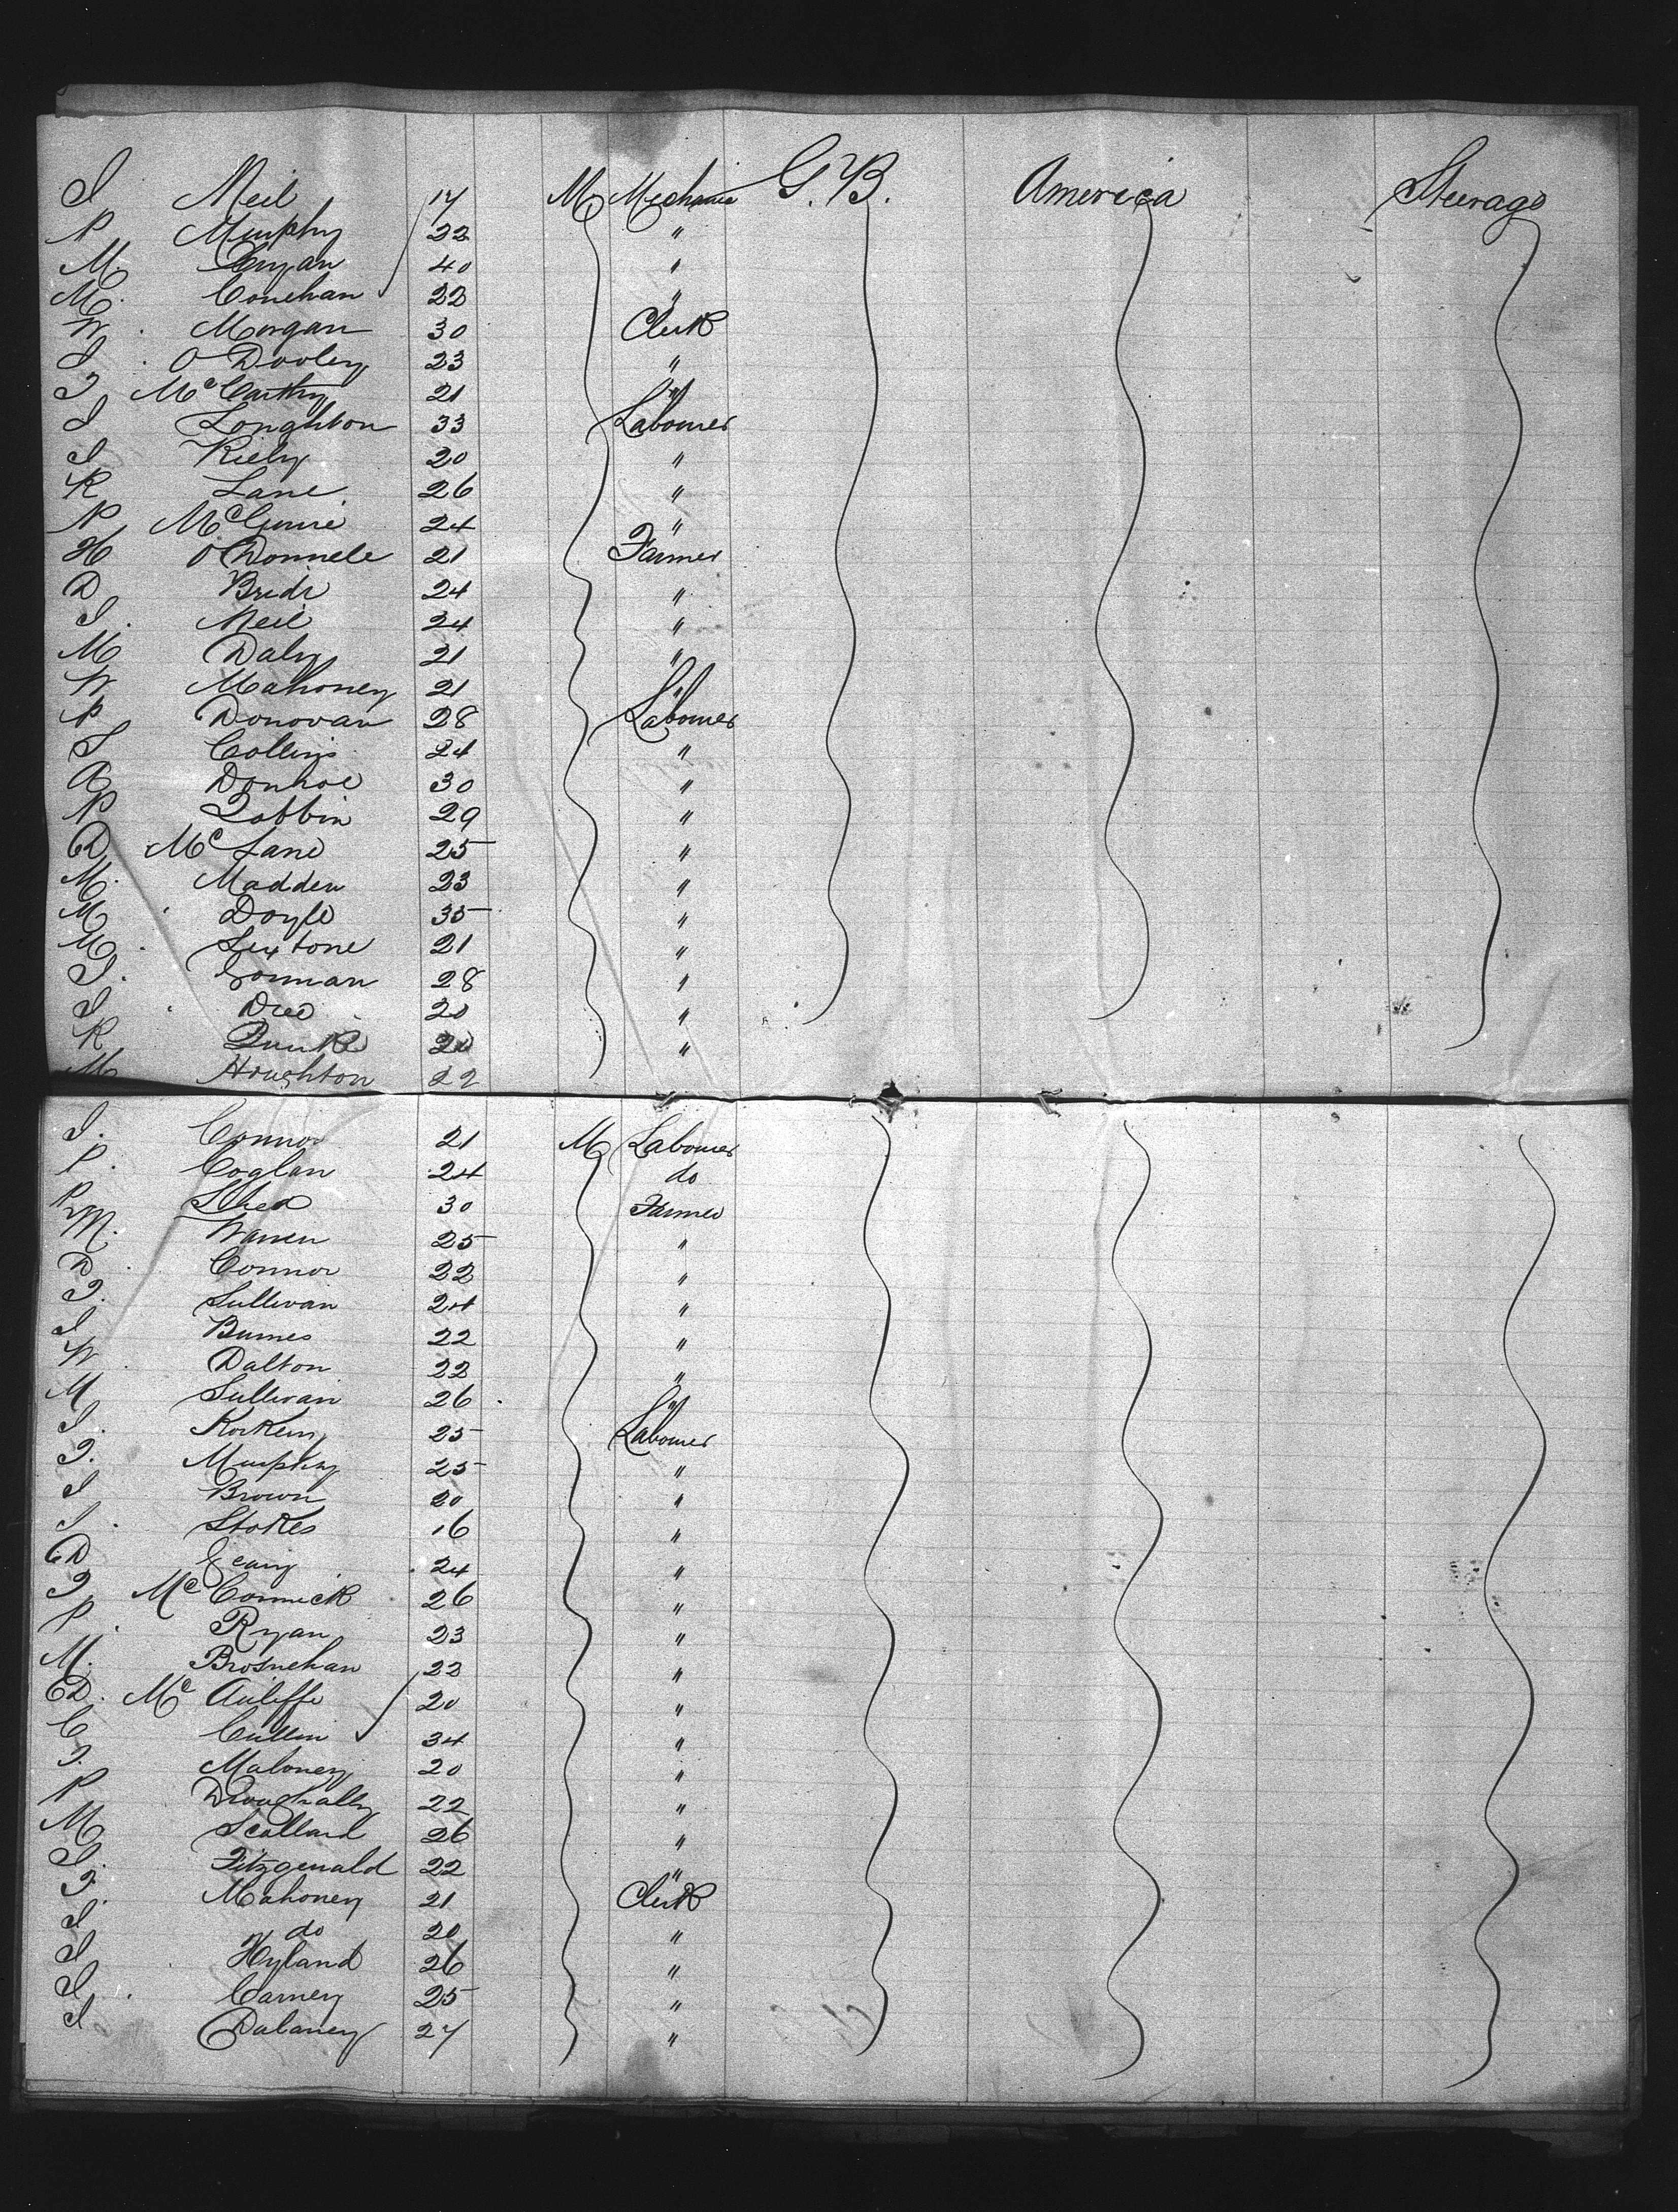 J Neil 17 M Mechanic G.B. America Steerage
P Murphy 22 "
M. Cryan 40 "
M. Conehan 22 "
W. Morgan 30 Clerk
J. O Dooley 23 "
T McCarthy 21 "
J Loughton 33 Labourer
J Riely 20 "
R Lane 26 "
P McGuire 24 "
H O'Donnele 21 Farmer
D Bride 24 "
J. Neil 24 "
M Daly 21 "
W Mahoney 21 "
P Donovan 28 Labourer
J Collins 24 "
A Donhoe 30 "
P Tobbin 29 "
D McLane 25 "
M. Madden 23 "
M Doyle 35 "
M. Sextone 21 "
J. Gorman 28 "
J Dree 20 "
R 20 "
M Houghton 22
J. Connor 21 M Labourer
P. Coglan 24 do
P Shea 30 Farmer
M. Warren 25 "
D. Connor 22 "
T. Sullivan 24 "
J Burnes 22 "
W. Dalton 22 "
M Sullivan 26 "
J. 25 Labourer
T. Murphy 25 "
J Brown 20 "
J. Stokes 16 "
D Geany 24 "
T McCormick 26 "
P. Ryan 23 "
M. Brosnehan 22 "
D. McAuliffe 20 "
C Cullin 34 "
T. Maloney 20 "
P 22 "
M Scallard 26 "
J. Fitzgerald 22 "
T. Mahoney 21 Clerk
J do 20 "
J. Hyland 26 "
J. Carney 25 "
J Dalaney 27 "